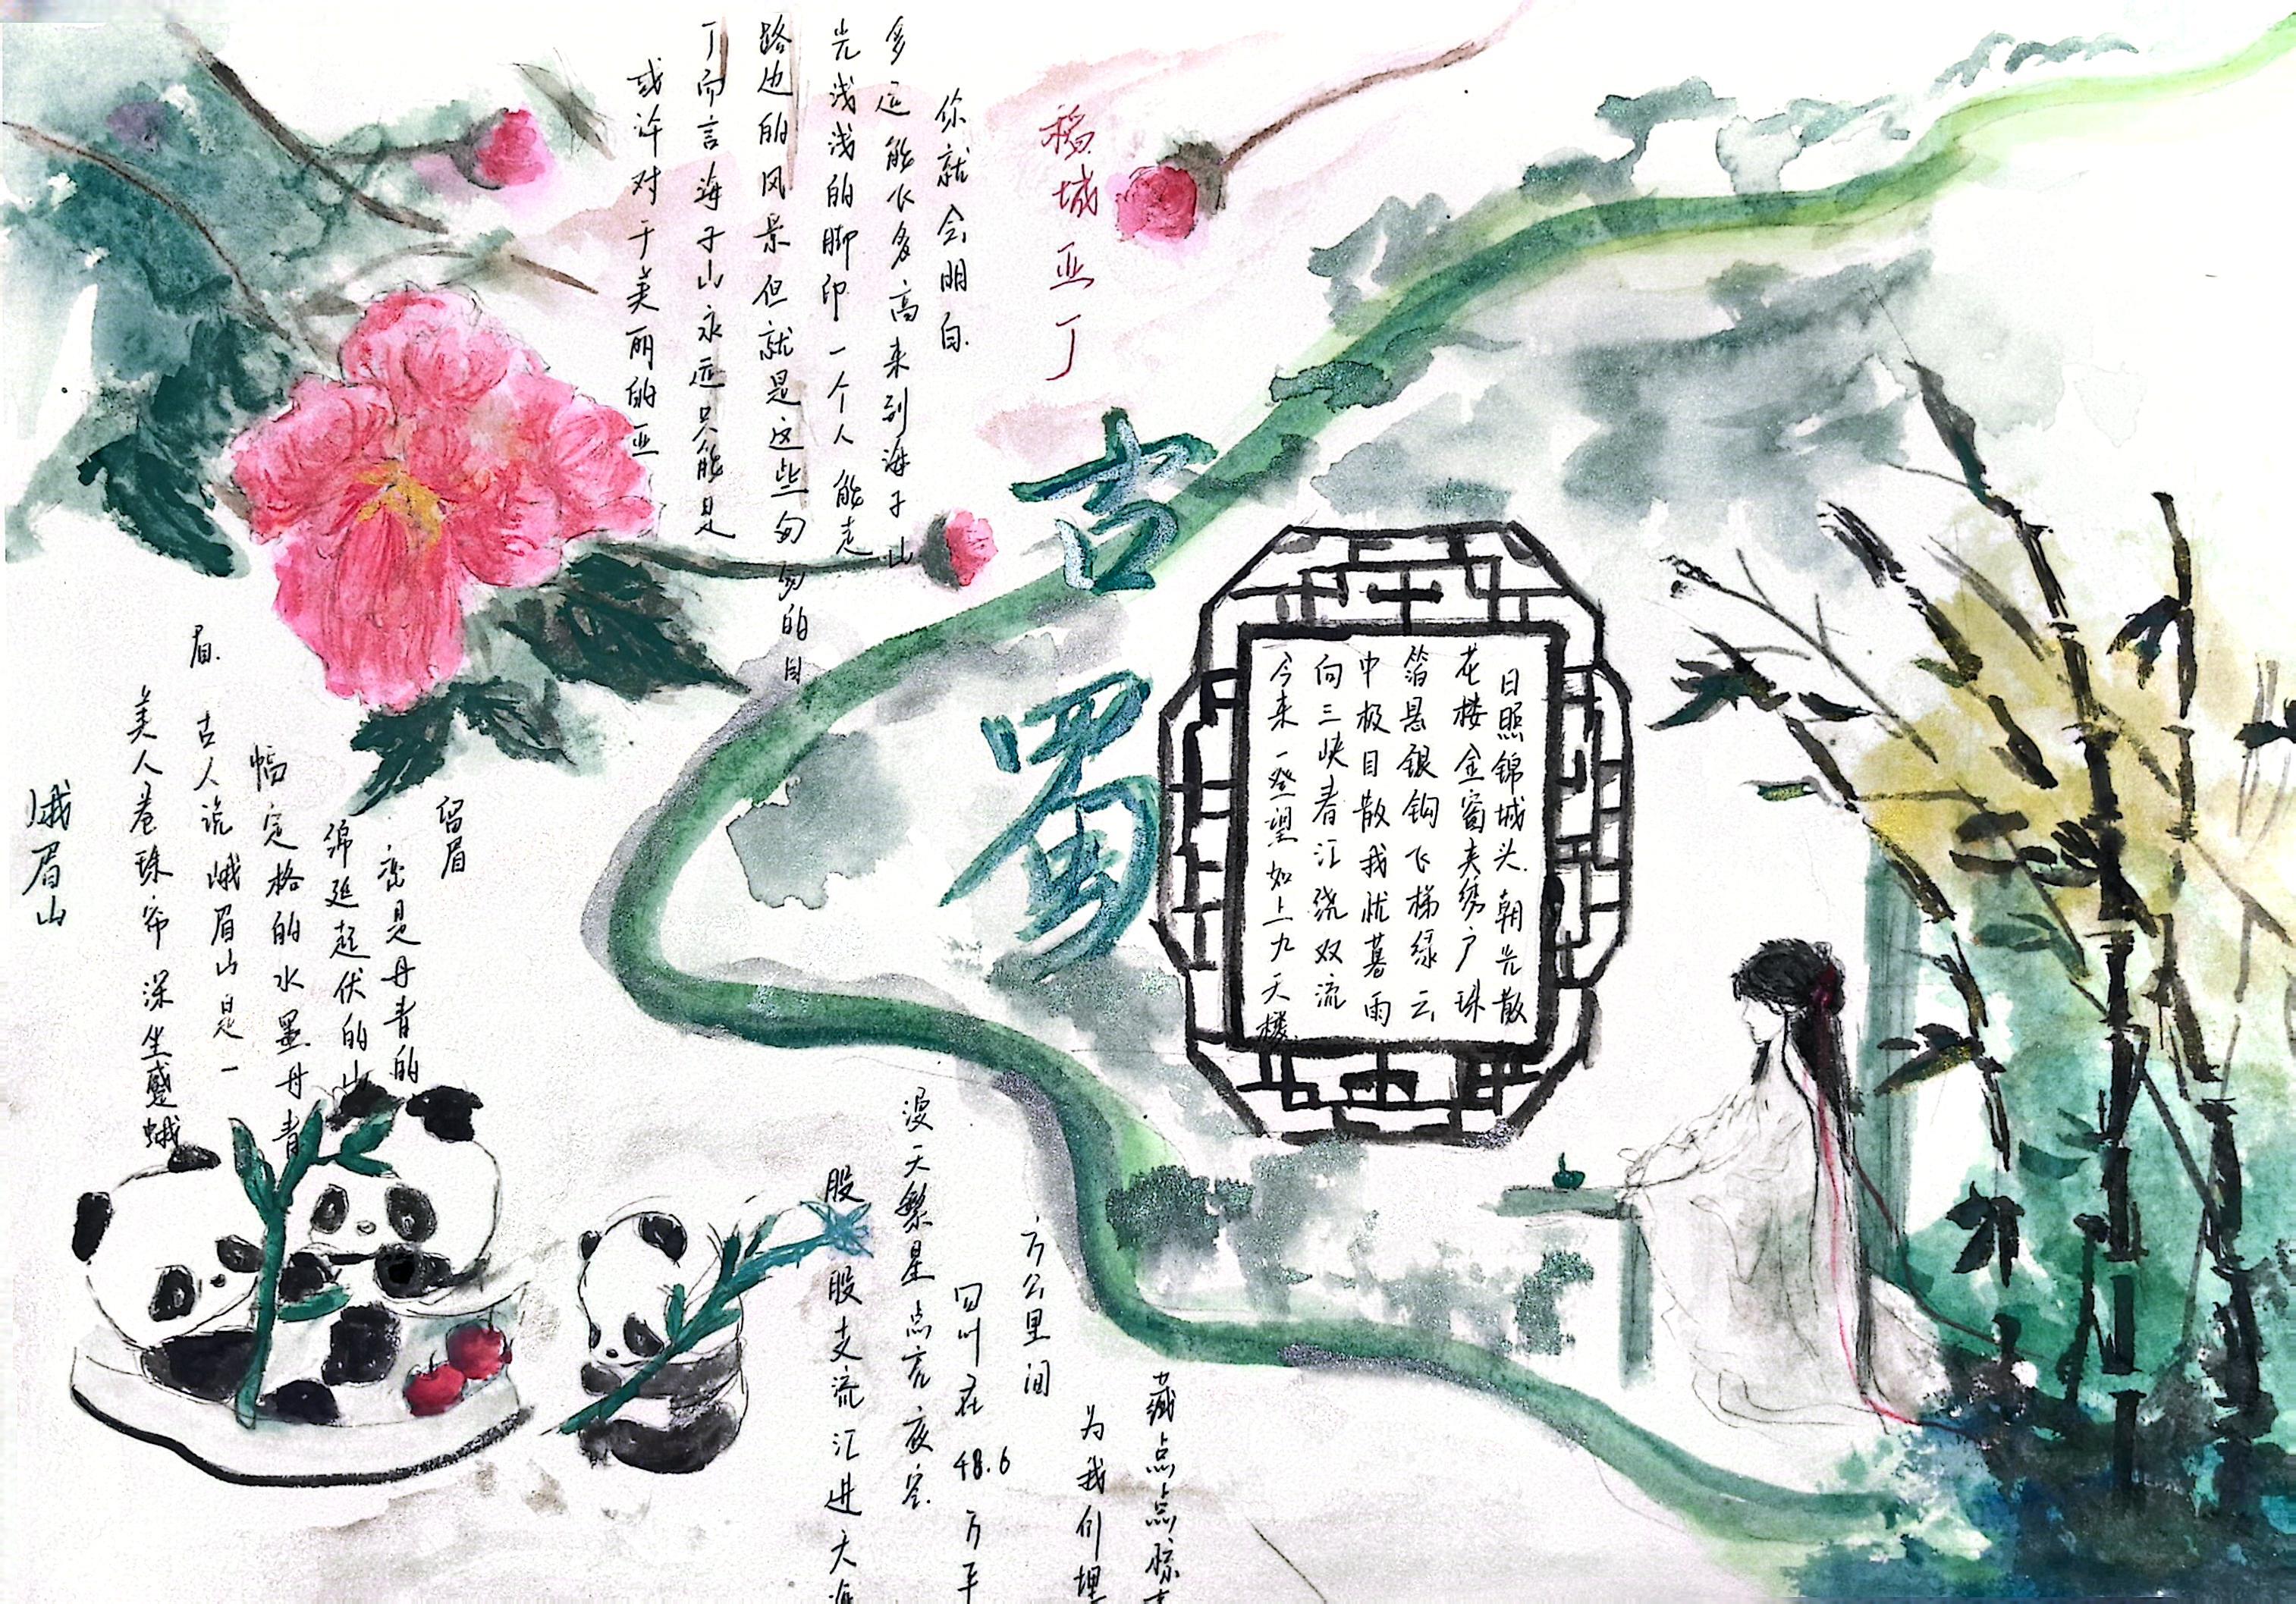 稻城亚丁
或许对于美丽的亚
丁而言海子山永远只能是
路边的风景但就是这些匆匆的目
光浅浅的脚印一个人能走
多远能飞多高来到海子山
你就会明白.
古蜀
日照锦城头 朝光散
花楼金窗夹绣户珠
箔悬银钩飞梯绿云
中极目散我忧暮雨
向三峡春江绕双流
今来一登望如上九天楼.
峨眉山
美人卷珠帘 深坐蹙蛾
眉. 古人说峨眉山是一
幅定格的水墨丹青
绵延起伏的山
峦是丹青的
留眉
股股支流汇进大海
漫天繁星点亮夜空
四川在48.6万平
方公里间
为我们埋
藏点点惊